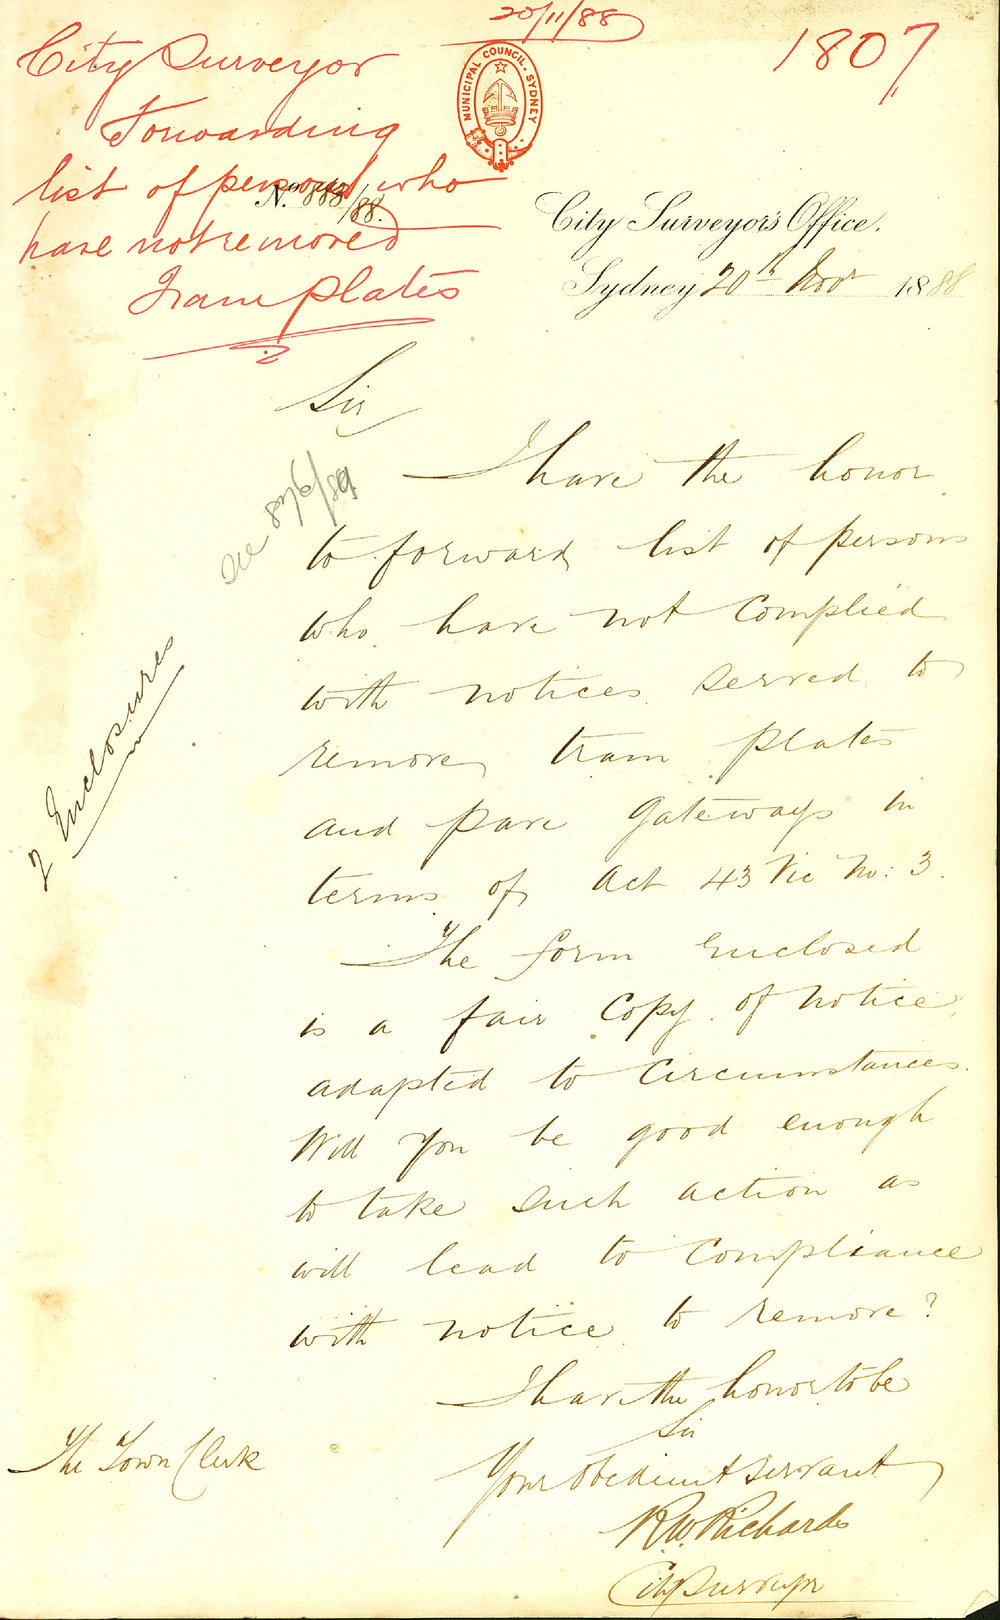 20/11/88
1807
City Surveyor
Forwarding
list of persons who
have not removed
Tram plates
MUNICIPAL COUNCIL. SYDNEY
No. 888/88.
City Surveyor's Office.
Sydney 20th Novr 1888
Sir
I have the honor
to forward list of persons
who have not complied
with notices served to
remove tram plates
and pave gateways in
terms of Act 43 Vic No: 3.
The form enclosed
is a fair copy of notice,
adapted to circumstances.
Will you be good enough
to take such action as
will lead to compliance
with notice to remove?
I have the honor to be
Sir
Your obedient servant
R.W. Richards
City Surveyor
The Town Clerk
2 Enclosures